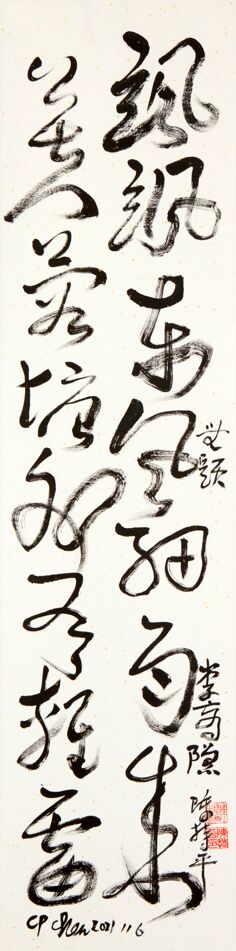 颯颯東風細雨來
芙蓉塘外有輕雷
無題
李商隱
陳持平
CP Chen 2021 11 6